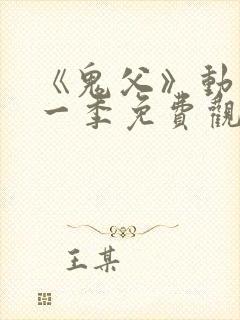 《鬼父》動
一季免費觀
王某